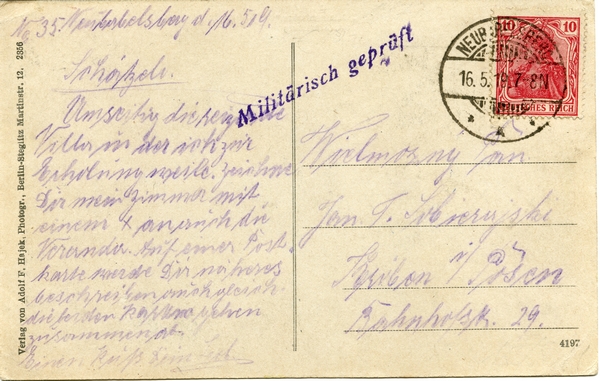 No 35. Neubabelsberg d. 16.5.19.
Schatzeli.
Umseitig die reizende
Villa in der ich zur
Erholung weile. Zeichne
Dir mein Zimmer mit
einem x an auch die
Veranda. Auf einer Post-
karte werde Dir näheres
beschreiben auch gleich
die beiden Karten gehen
zusammen ab.
Einen Kuß
Militärisch geprüft
10 10
DEUTSCHES REICH
16.5.19.7-8N
Wielmozny Pan
Jan T.
i/Posen
Bahnhofstr. 29.
4197
Verlag von Adolf F. Hajek, Photogr., Berlin-Steglitz Martinstr. 12. 2356